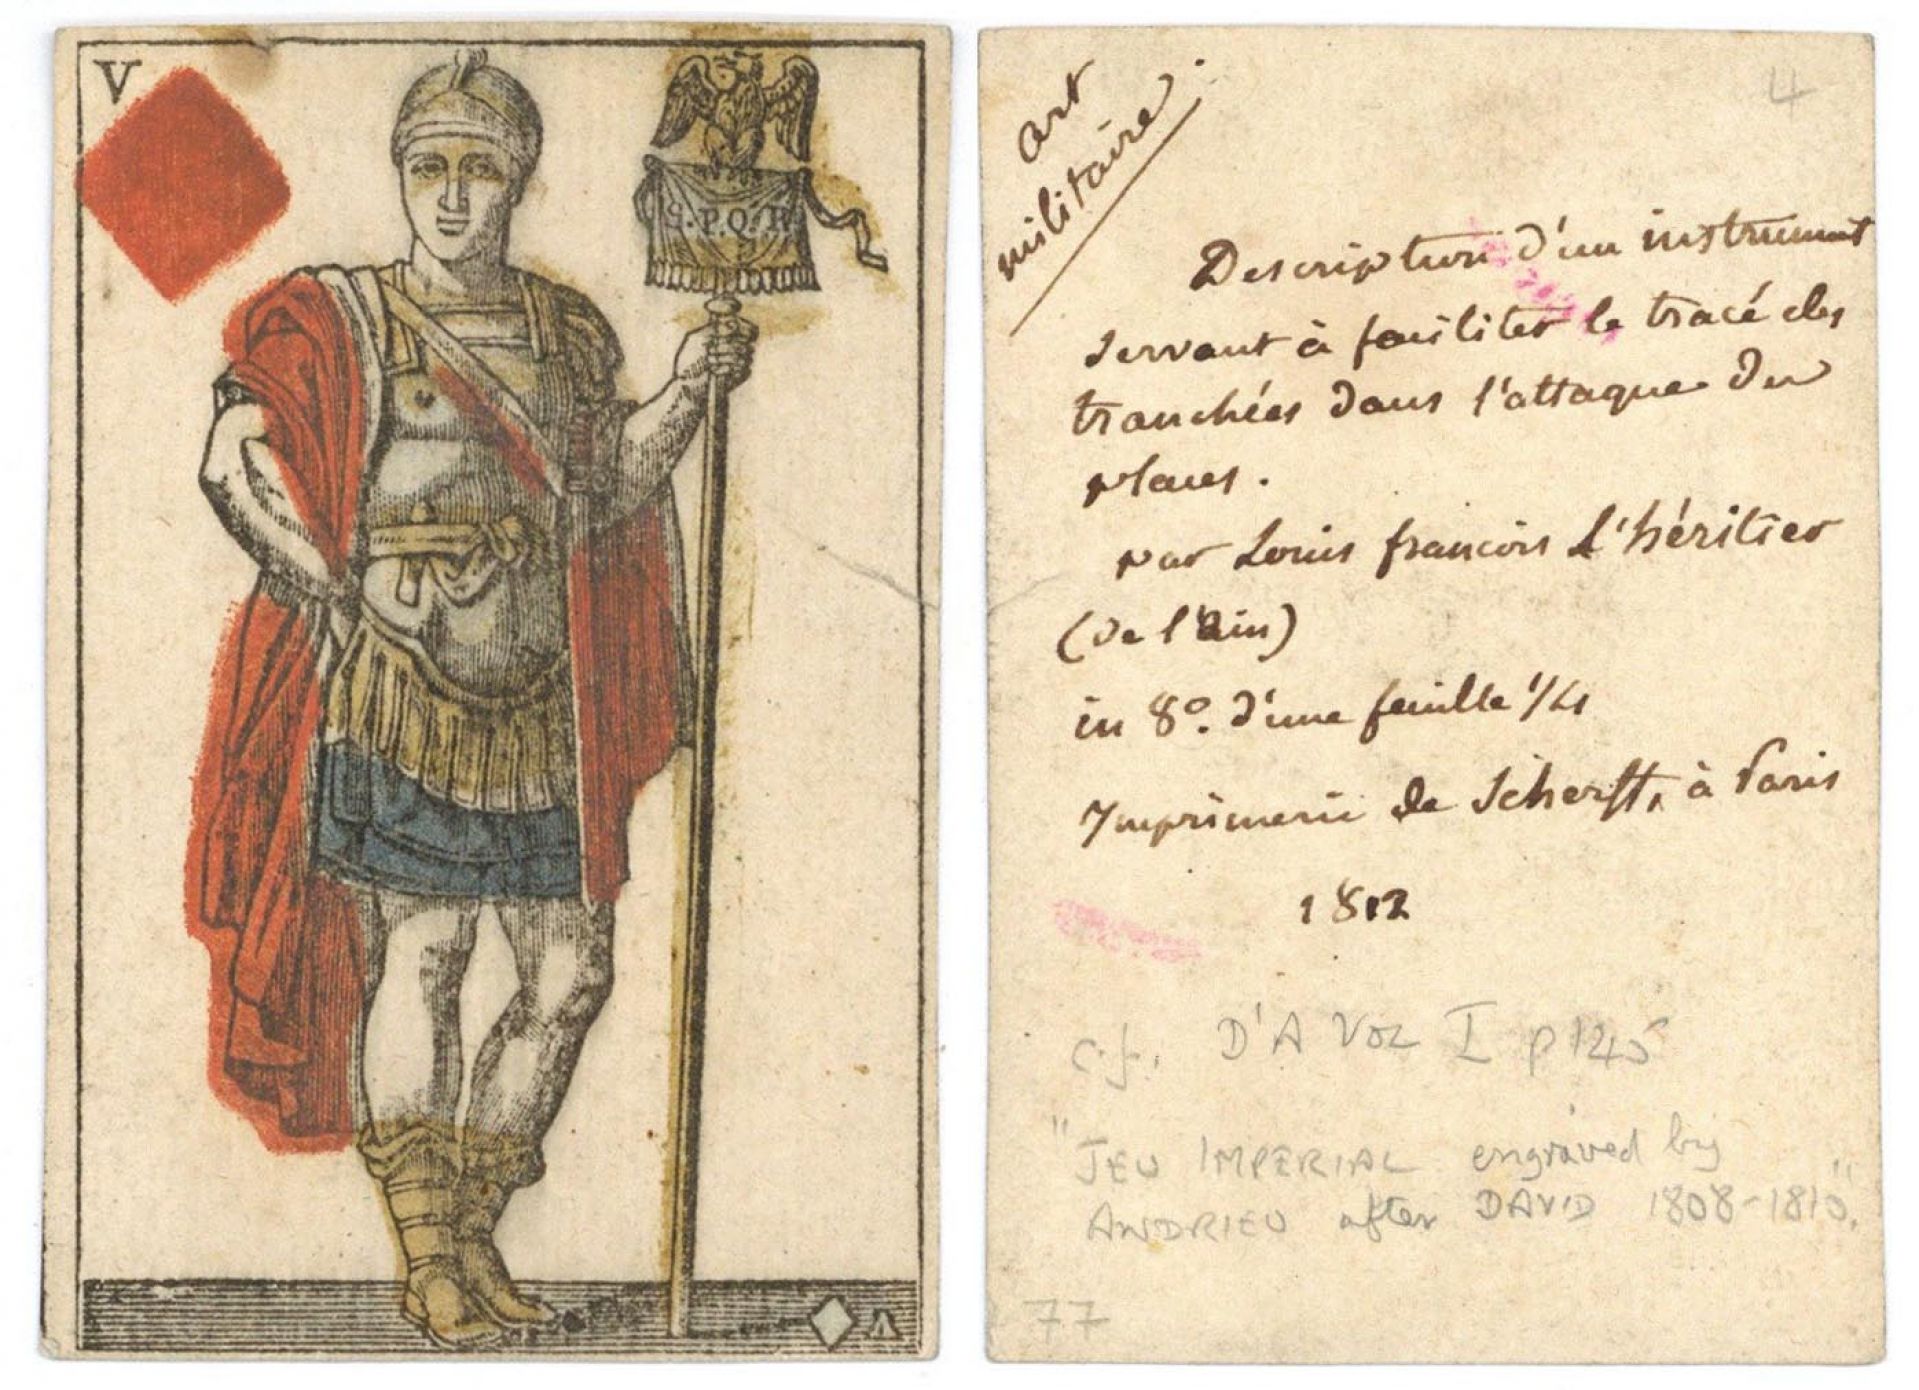 V
S.P.Q.R
V
4
art
militaire.
Description d'un instrument
servant à faciliter le tracé des
tranchées dans l'attaque des
places.
par Louis françois L'héritier
(de l'ain)
in 8º. d'une feuille 1/4
Imprimerie de Scherff, à Paris
1812
c.f. D'A VOL I p 145
"JEU IMPERIAL engraved by
ANDRIEU after DAVID 1808-1810".
77